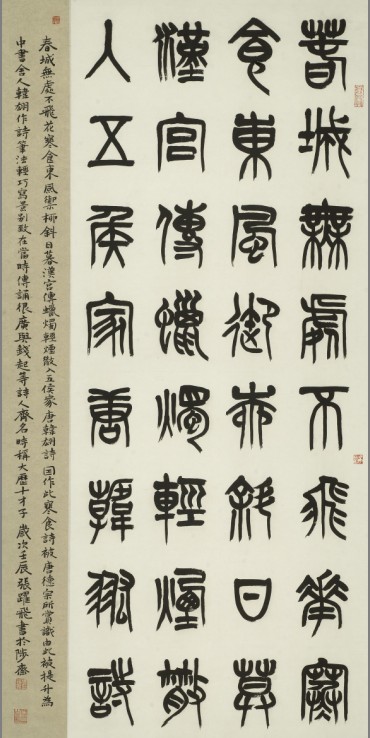 春城無處不飛花寒
食東風御柳斜日暮
漢宮傳蠟燭輕煙散
入五侯家唐韓翃詩
春城無處不飛花寒食東風禦柳斜日暮漢宮傳蠟燭輕煙散入五侯家唐韓翃詩 因作此寒食詩被唐德宗所賞識由此被提升為
中書舍人韓翃作詩筆法輕巧寫景別致在當時傳誦很廣與錢起等詩人齊名時稱大曆十才子 歲次壬辰張躍飛書於陟齋